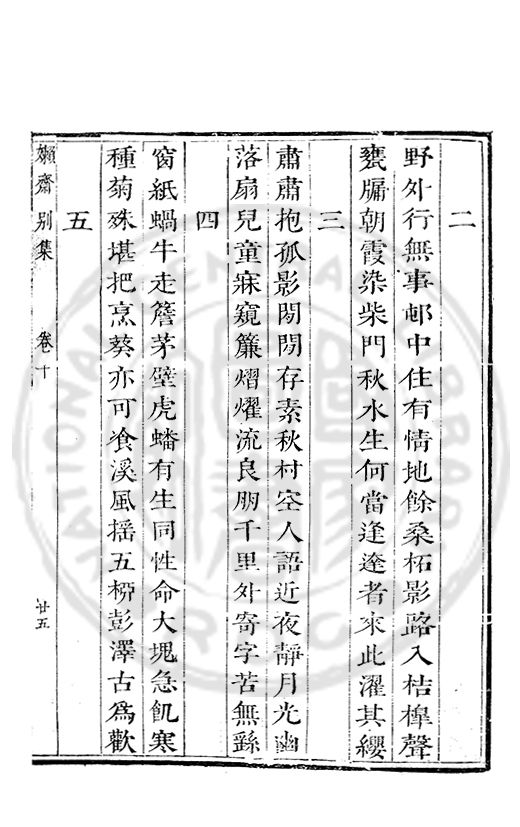 二
野外行無事邨中住有情地餘桑柘影路入桔橰聲
甕牖朝霞染柴門秋水生何當逢遼者來此濯其纓
三
肅肅抱孤影閔閔存素秋村空人語近夜靜月光幽
落扇兒童寐窺簾熠燿流良朋千里外寄字苦無繇
四
窗紙蝸牛走簷茅壁虎蟠有生同性命大塊急飢寒
種菊殊堪把烹葵亦可飡溪風搖五栁彭澤古爲歡
五
嬾齋別集 卷十 廿五